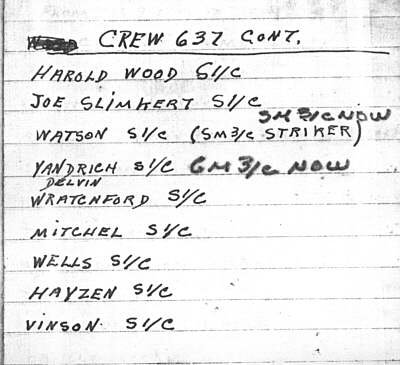 CREW 637 CONT.
HAROLD WOOD S1/C
JOE SLIMKERT S1/C
SM 3/C NOW
WATSON S1/C (SM3/C STRIKER)
YANDRICH S1/C GM 3/C NOW
DELVIN
WRATCHFORD S1/C
MITCHEL S1/C
WELLS S1/C
HAYZEN S1/C
VINSON S1/C